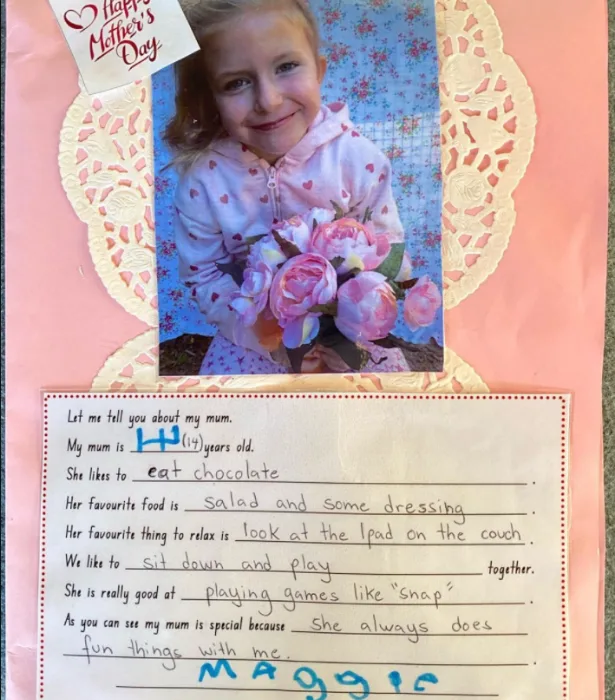 Happy
Mother's
Day
Let me tell you about my mum.
My mum is 14 (14) years old.
She likes to eat chocolate.
Her favourite food is salad and some dressing.
Her favourite thing to relax is look at the Ipad on the couch.
We like to sit down and play together.
She is really good at playing games like "snap".
As you can see my mum is special because she always does
fun things with me.
MAggie